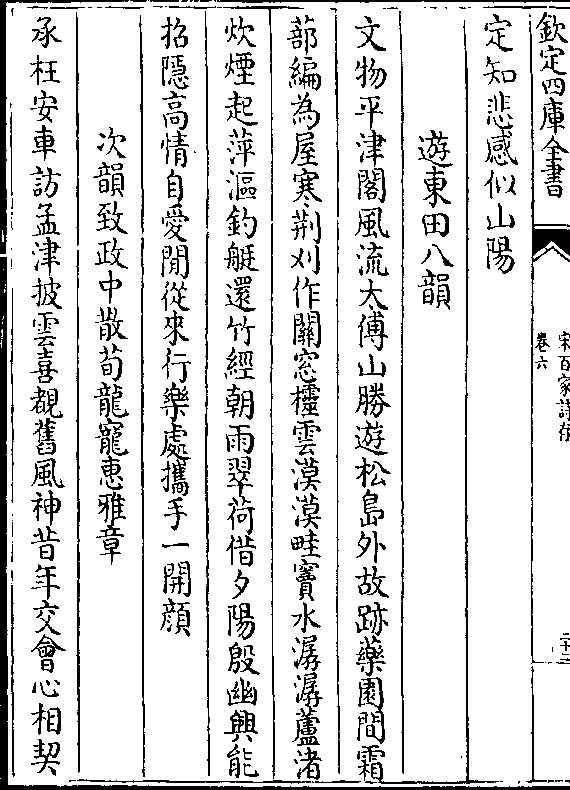 欽定四庫全書
宋百家詩存
卷六
二十二
定知悲感似山陽
遊東田八韻
文物平津閣風流太傅山勝遊松島外故跡藥園間霜
蔀編為屋寒荆刈作關窓櫺雲漠漠畦竇水潺潺蘆渚
炊煙起萍漚釣艇還竹經朝雨翠荷借夕陽殷幽興能
招隱高情自愛閒從來行樂處攜手一開顔
次韻致政中散荀龍寵惠雅章
承枉安車訪孟津披雲喜覩舊風神昔年交會心相契